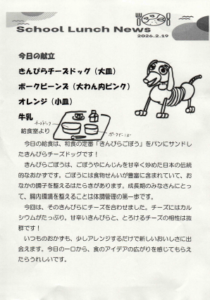 School Lunch News
2026.2.19
今日の献立
きんぴらチーズドッグ（大皿）
ポークビーンズ（大わん肉ピンク）
オレンジ（小皿）
牛乳
給食室より
今日の給食は、和食の定番「きんぴらごぼう」をパンにサンドし
たきんぴらチーズドッグです！
きんぴらごぼうは、ごぼうやにんじんを甘辛く炒めた日本の伝統
的なおかずです。ごぼうには食物せんいが豊富に含まれていて、お
なかの調子を整えるはたらきがあります。成長期のみなさんにとっ
て、腸内環境を整えることは体調管理の第一歩です。
今日は、そのきんぴらにチーズを合わせました。チーズにはカル
シウムがたっぷり。甘辛いきんぴらと、とろけるチーズの相性は抜
群です！
いつものおかずも、少しアレンジするだけで新しいおいしさに出
会えます。今日の一口から、食のアイデアの広がりを感じてもらえ
たらうれしいです。